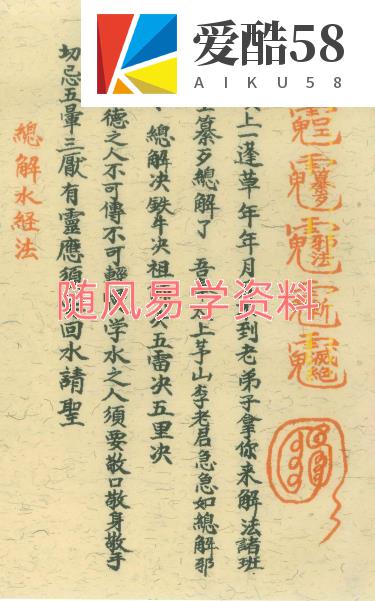 爱酷58
AIKU58
上一蓬草年年月
到老弟子拿你来解法諸班
纂歹總解了 吾
上茅山李老君急急如總解邪
總解决鉄牛决祖
五雷决五里决
德之人不可傳不可輕
学水之人須要敬口敬身敬手
切忌五暈三厭有靈應須
回水請聖
總解水経法
邪法
滅絕
随风易学资料